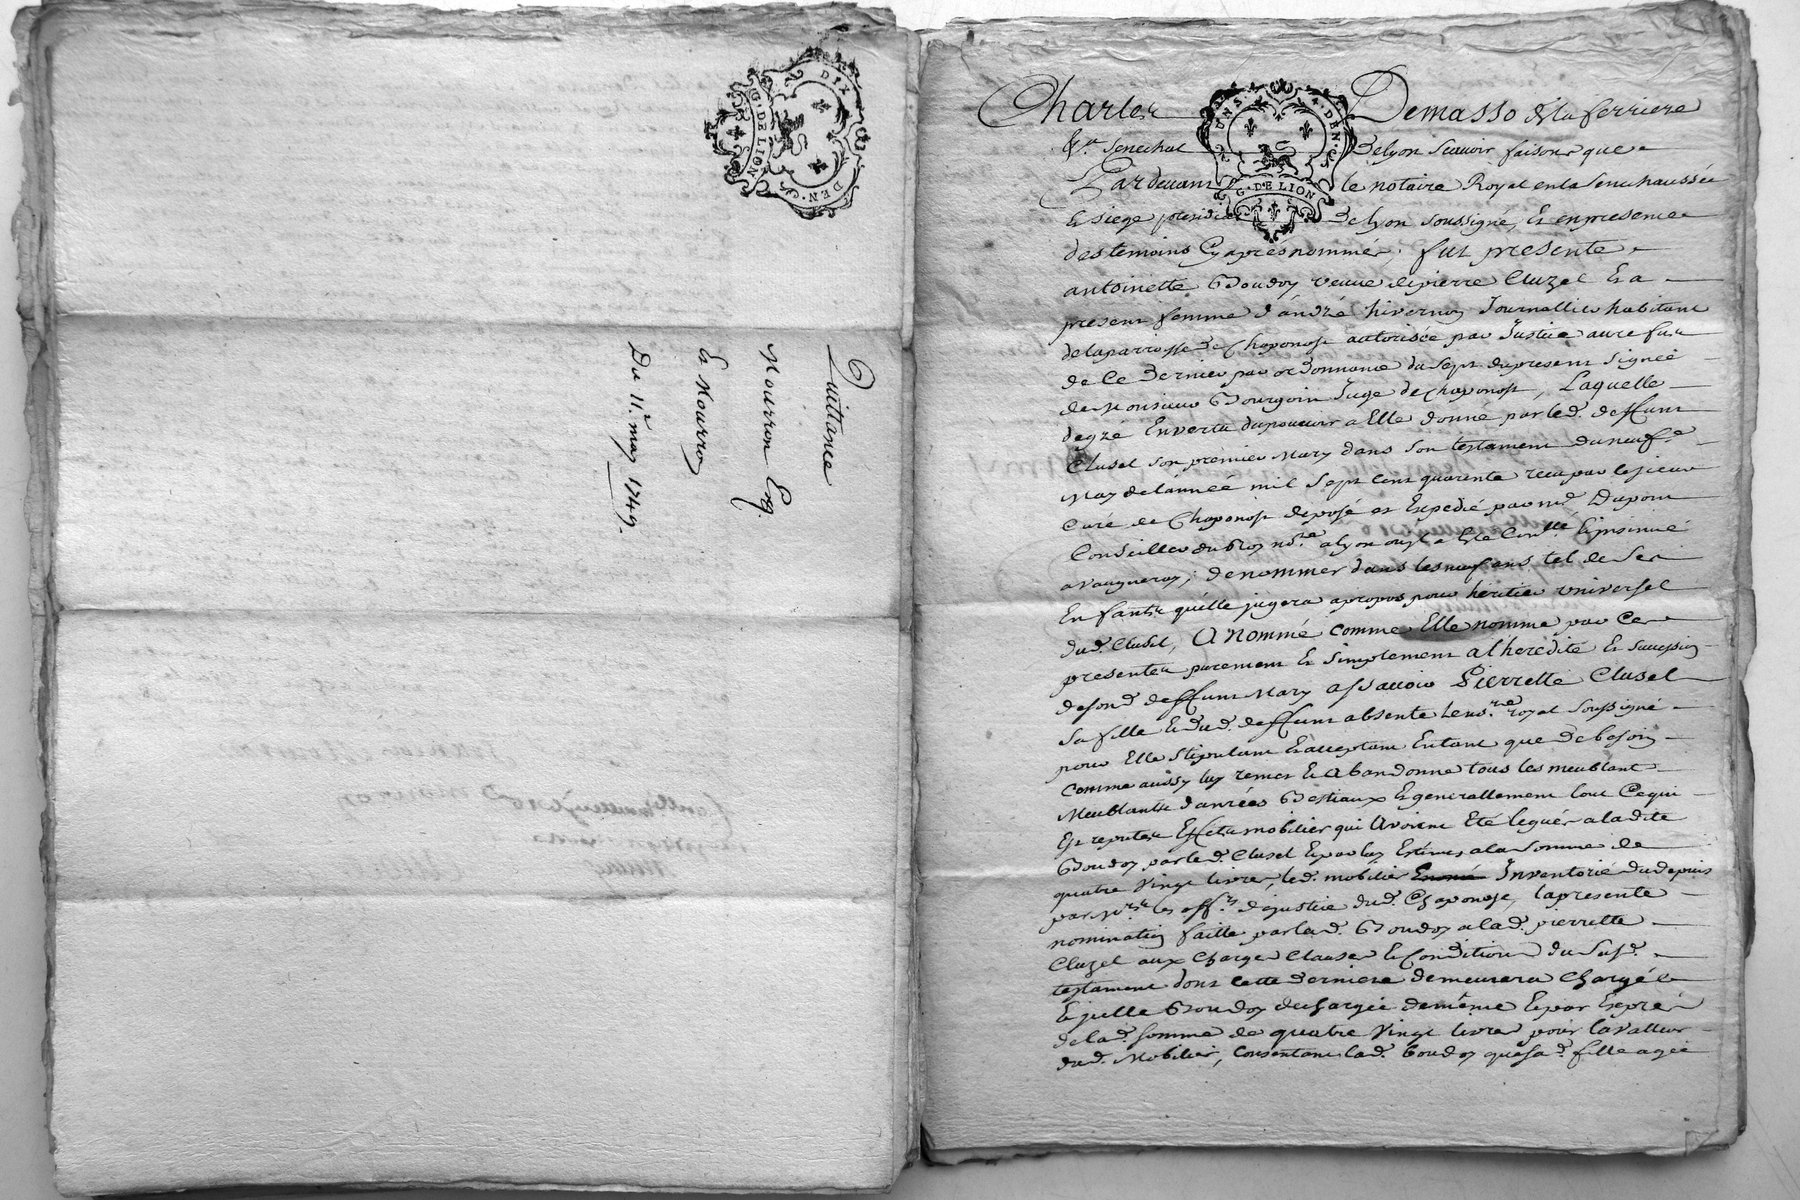 DIX DEN.
G. DE LION
Quittance
Mourron Esq.
Et Mourron
Du 11.e may 1749.
UNS. 4. DEN.
G. DE LION
Charles Demasso de la ferriere
Sr. Senechal de lyon scavoir faisons que
Pardevant le notaire Royal en la Senechaussée
et siege presidial de lyon soussigné, et en presence
des temoins Cy apres nommés, fut presente
antoinette Boudoy veuve de pierre Cluzel et a
present femme d'andré hivernon Journallier habitant
de la parroisse de Chaponost autorisée par Justice au refus
de Ce dernier par ordonnance du sept du present signée
de Monsieur Bourgoin Juge de Chaponost, Laquelle
de gré En vertu du pouvoir a Elle donné par led. deffunt
Clusel son premier Mary dans son testament du neuf
May de l'année mil sept cent quarente recu par le sieur
Curé de Chaponost deposé et Expedié par me. Dupont
Conseiller du Roy nore. a lyon ou il a Eté Conllé et insinué
a vaugneray, de nommer dans les neuf ans tel de ses
Enfants qu'elle jugera a propos pour heritier universel
dud. Clusel, A nommé comme Elle nomme par Ces
presentes purement et simplement a l'heredité et succession
de sond. deffunt Mary assavoir Pierrette Clusel
sa fille et dud. deffunt absente le nore. royal soussigné
pour Elle stipulant et acceptant Entant que de besoin
comme aussy luy remet et abandonne tous les meublant
Meublants danrées Bestiaux et generallement tout Ce qui
Est reputés Effets mobilier qui avoient Eté legués a ladite
Boudoy par led. Clusel et par luy Estimés a la somme de
quatre vingt livres, led. mobilier Inventorié du depuis
par Mrs. les offrs. de justice dud. Chaponost, la presente
nomination faitte par lad. Boudoy a lad. pierrette
Cluzel aux Charges Clauses et Conditions du susd.
testament dont cette derniere demeurera Chargée
et jcelle Boudoy dechargée de même et par Exprés
de lad. somme de quatre vingt livres pour la valleur
dud. Mobilier, Consentant lad. boudoy que sa d. fille agée